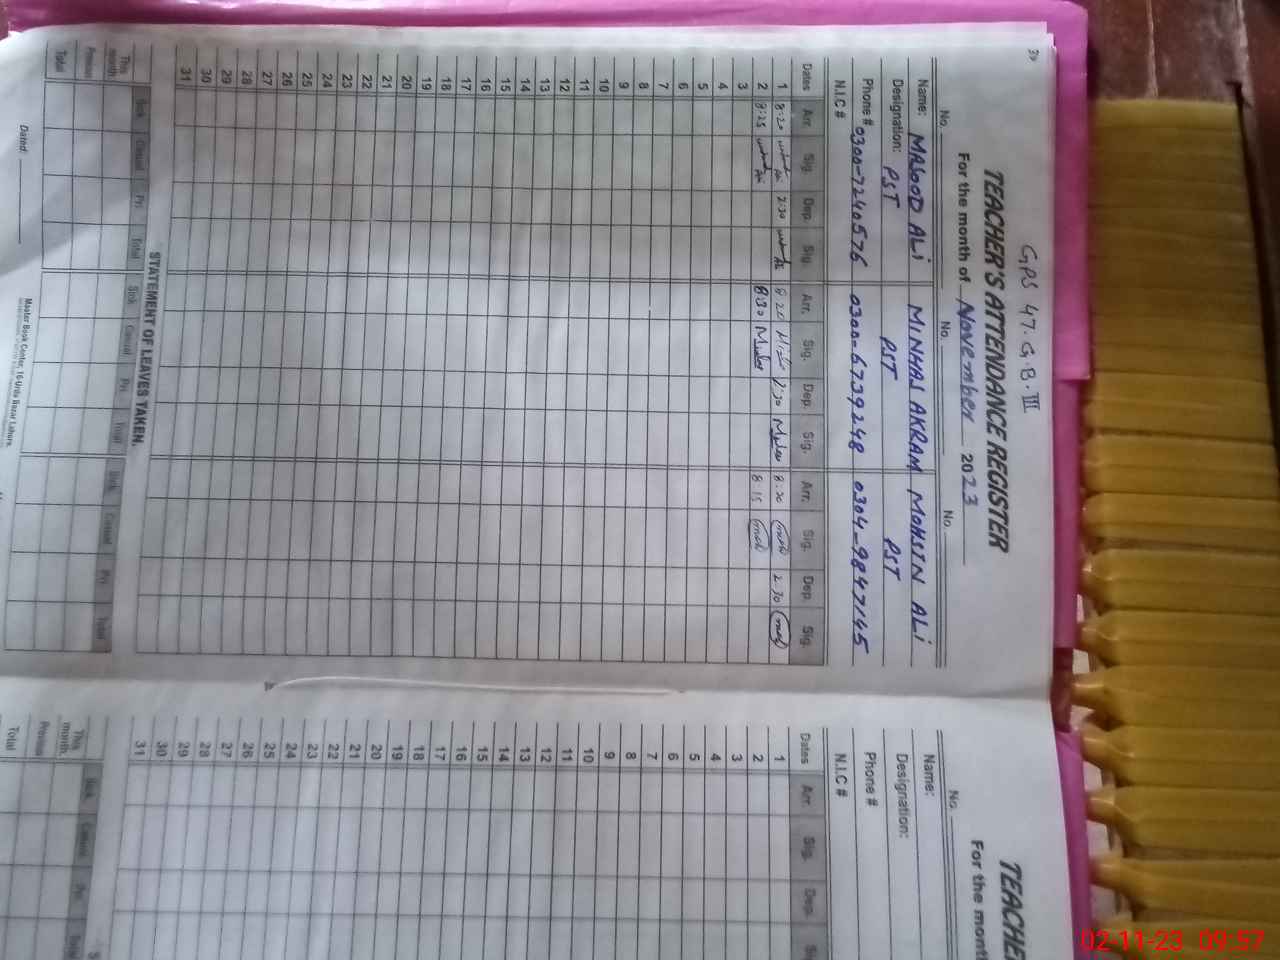 39
GPS 47. G.B. III
TEACHER'S ATTENDANCE REGISTER
For the month of November 2023
No. No. No.
Name: MASOOD ALi MINHAS AKRAM MOHSIN ALi
Designation: PST PST PST
Phone # 0300-7240576 0300-6739248 0304-9847145
N.I.C #
Dates Arr. Sig. Dep. Sig. Arr. Sig. Dep. Sig. Arr. Sig. Dep. Sig.
1 8:20 2:30 8:20 2:30 8:20 2:30
2 8:25 8:30 8:15
3
4
5
6
7
8
9
10
11
12
13
14
15
16
17
18
19
20
21
22
23
24
25
26
27
28
29
30
31
STATEMENT OF LEAVES TAKEN.
Sick Casual Pri Total Sick Casual Pri Total Sick Casual Pri Total
This month
Previous
Total
Dated:
Master Book Center, 16-Urdu Bazar Lahore.
TEACHE
For the mont
No.
Name:
Designation:
Phone #
N.I.C #
Dates Arr. Sig. Dep.
1
2
3
4
5
6
7
8
9
10
11
12
13
14
15
16
17
18
19
20
21
22
23
24
25
26
27
28
29
30
31
Sick Casual Pri Total
This month.
Previous
Total
02-11-23 09:57